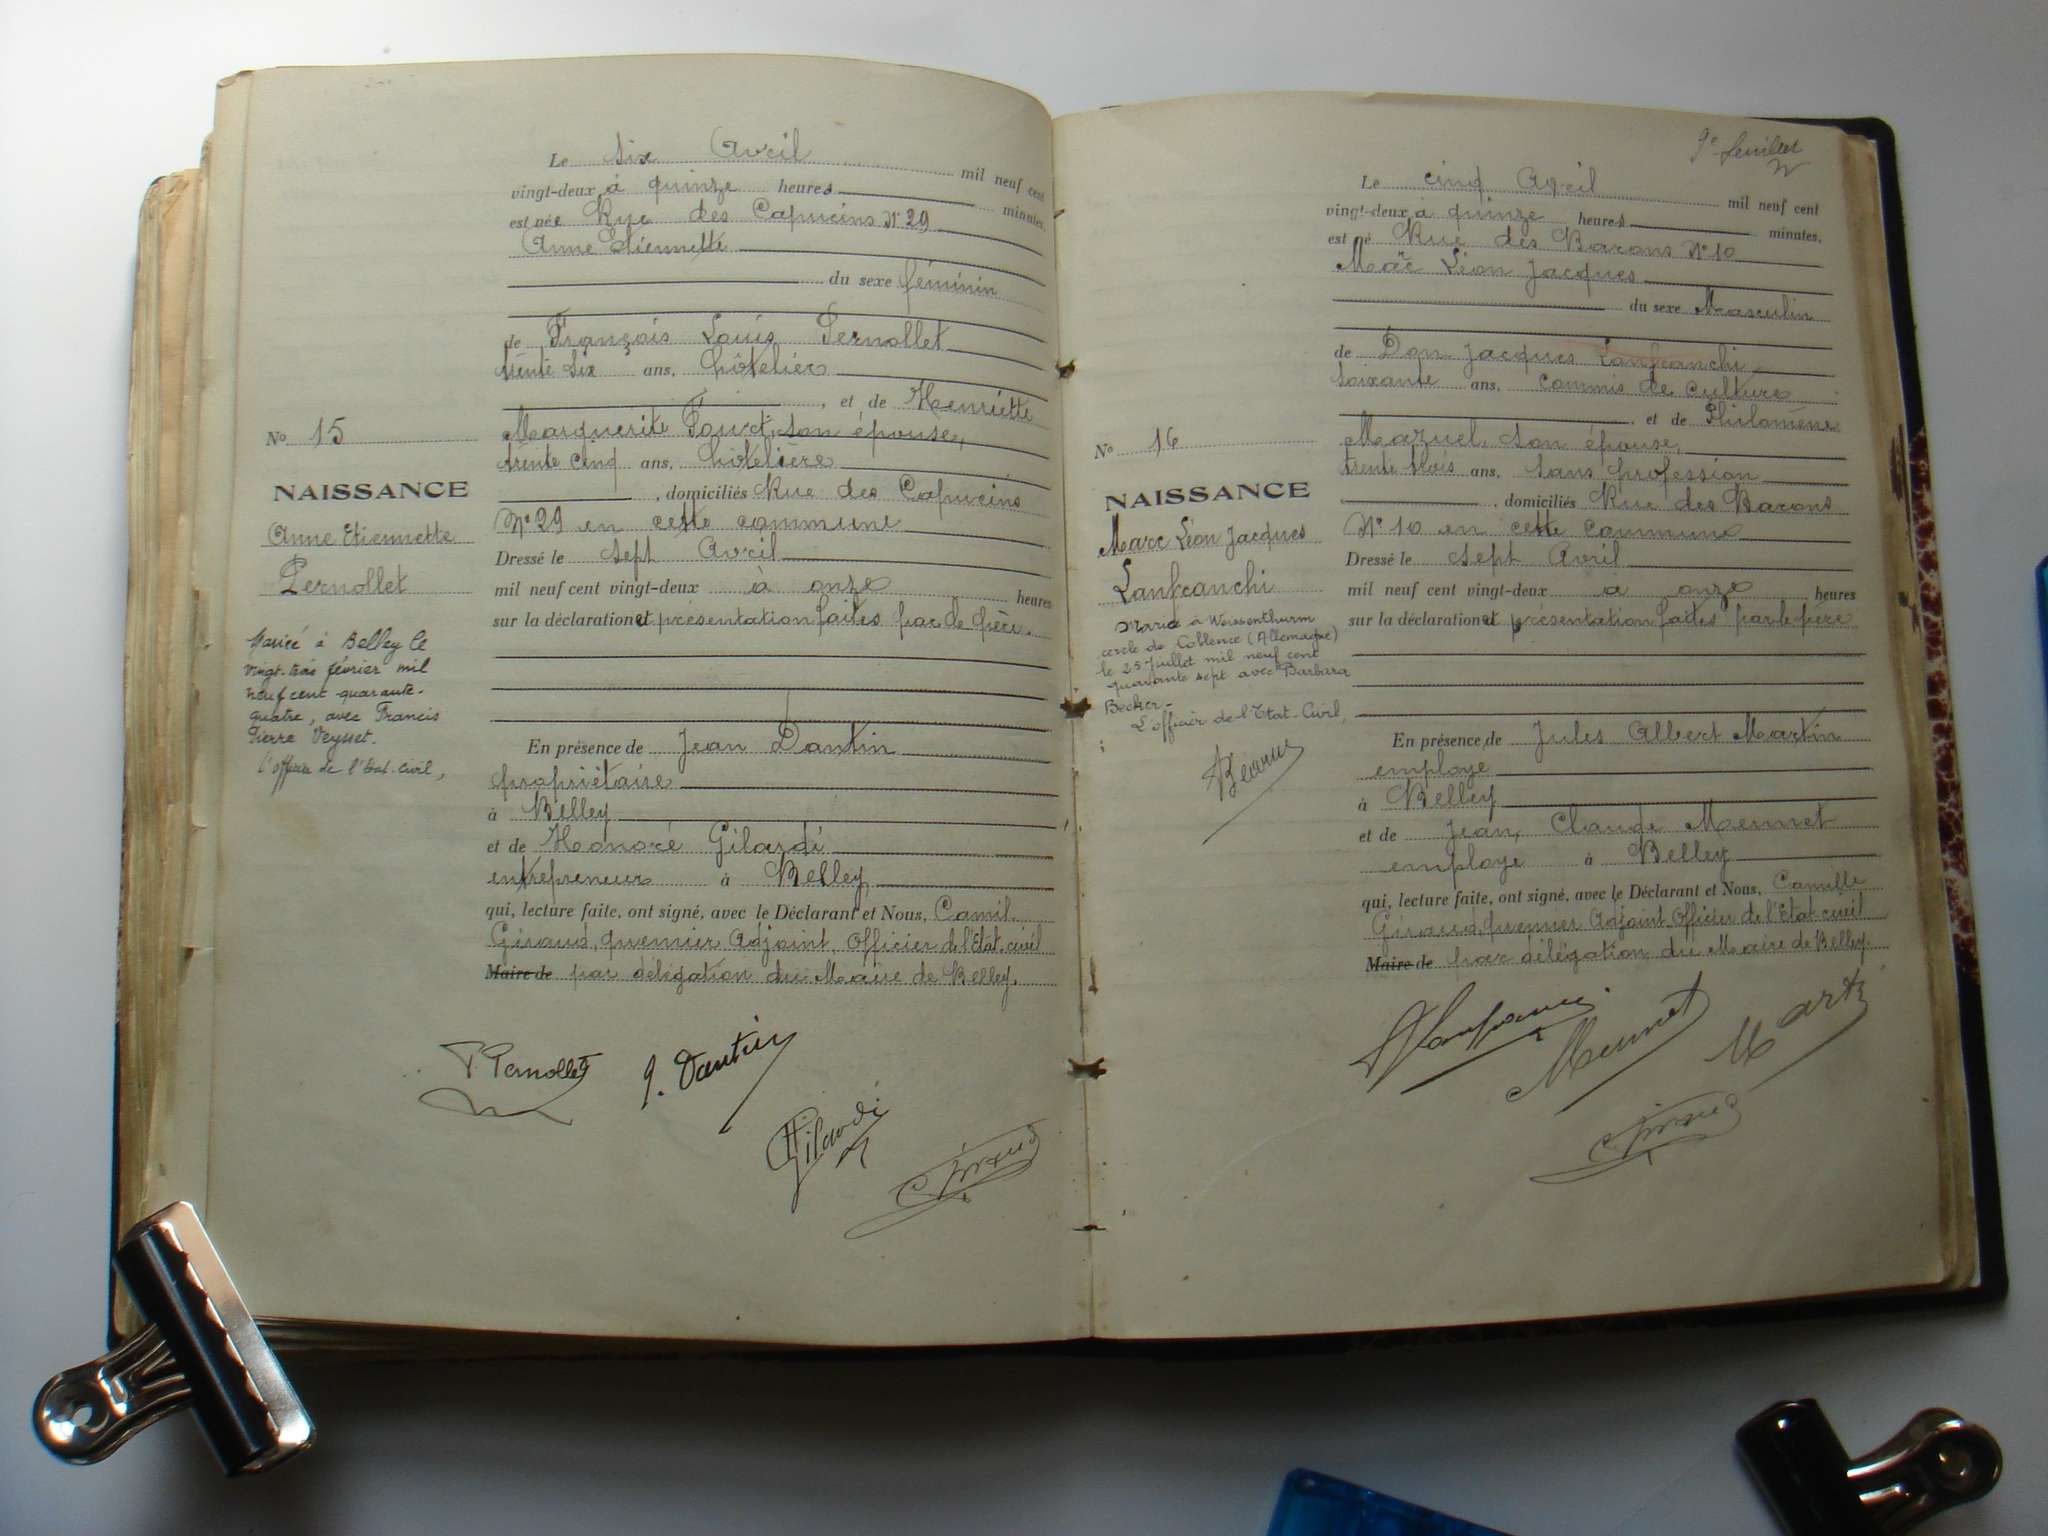 Le six Avril mil neuf cent
vingt-deux à quinze heures minutes,
est née Rue des Capucins N° 29
Anne Etiennette
du sexe féminin
de François Louis Pernollet
trente six ans, hôtelier
, et de Henriette
Marguerite son épouse,
trente cinq ans, hôtelière
, domiciliés Rue des Capucins
N° 29 en cette commune
Dressé le sept Avril
mil neuf cent vingt-deux à onze heures
sur la déclaration et présentation faites par le père.
En présence de Jean Dantin
propriétaire
à Belley
et de Honoré Gilardi
entrepreneur à Belley
qui, lecture faite, ont signé, avec le Déclarant et Nous, Camil.
Giraud, premier Adjoint, Officier de l'Etat-civil
Maire de par délégation du Maire de Belley.
N° 15
NAISSANCE
Anne Etiennette
Pernollet
Mariée à Belley le
vingt-trois février mil
neuf cent quarante-
quatre, avec Francis
Pierre Veysset.
l'officier de l'Etat-Civil,
F. Pernollet
J. Dantin
Gilardi
C. Giraud
9e feuillet
Le cinq Avril mil neuf cent
vingt-deux à quinze heures minutes,
est né Rue des Barons N° 10
Marc Léon Jacques
du sexe Masculin
de Don Jacques Lanfranchi
soixante ans, commis de culture
, et de Philomène
Mazuel, son épouse,
trente trois ans, sans profession
, domiciliés Rue des Barons
N° 10 en cette commune
Dressé le sept Avril
mil neuf cent vingt-deux à onze heures
sur la déclaration et présentation faites par le père
En présence de Jules Albert Martin
employé
à Belley
et de Jean Claude Mennet
employé à Belley
qui, lecture faite, ont signé, avec le Déclarant et Nous, Camille
Giraud, premier Adjoint, Officier de l'Etat-civil
Maire de par délégation du Maire de Belley.
N° 16
NAISSANCE
Marc Léon Jacques
Lanfranchi
Marié à Weissenthurm
cercle de Coblence (Allemagne)
le 25 Juillet mil neuf cent
quarante sept avec Barbara
Becker -
L'officier de l'Etat-Civil,
Lanfranchi
Mennet
Marti
C. Giraud